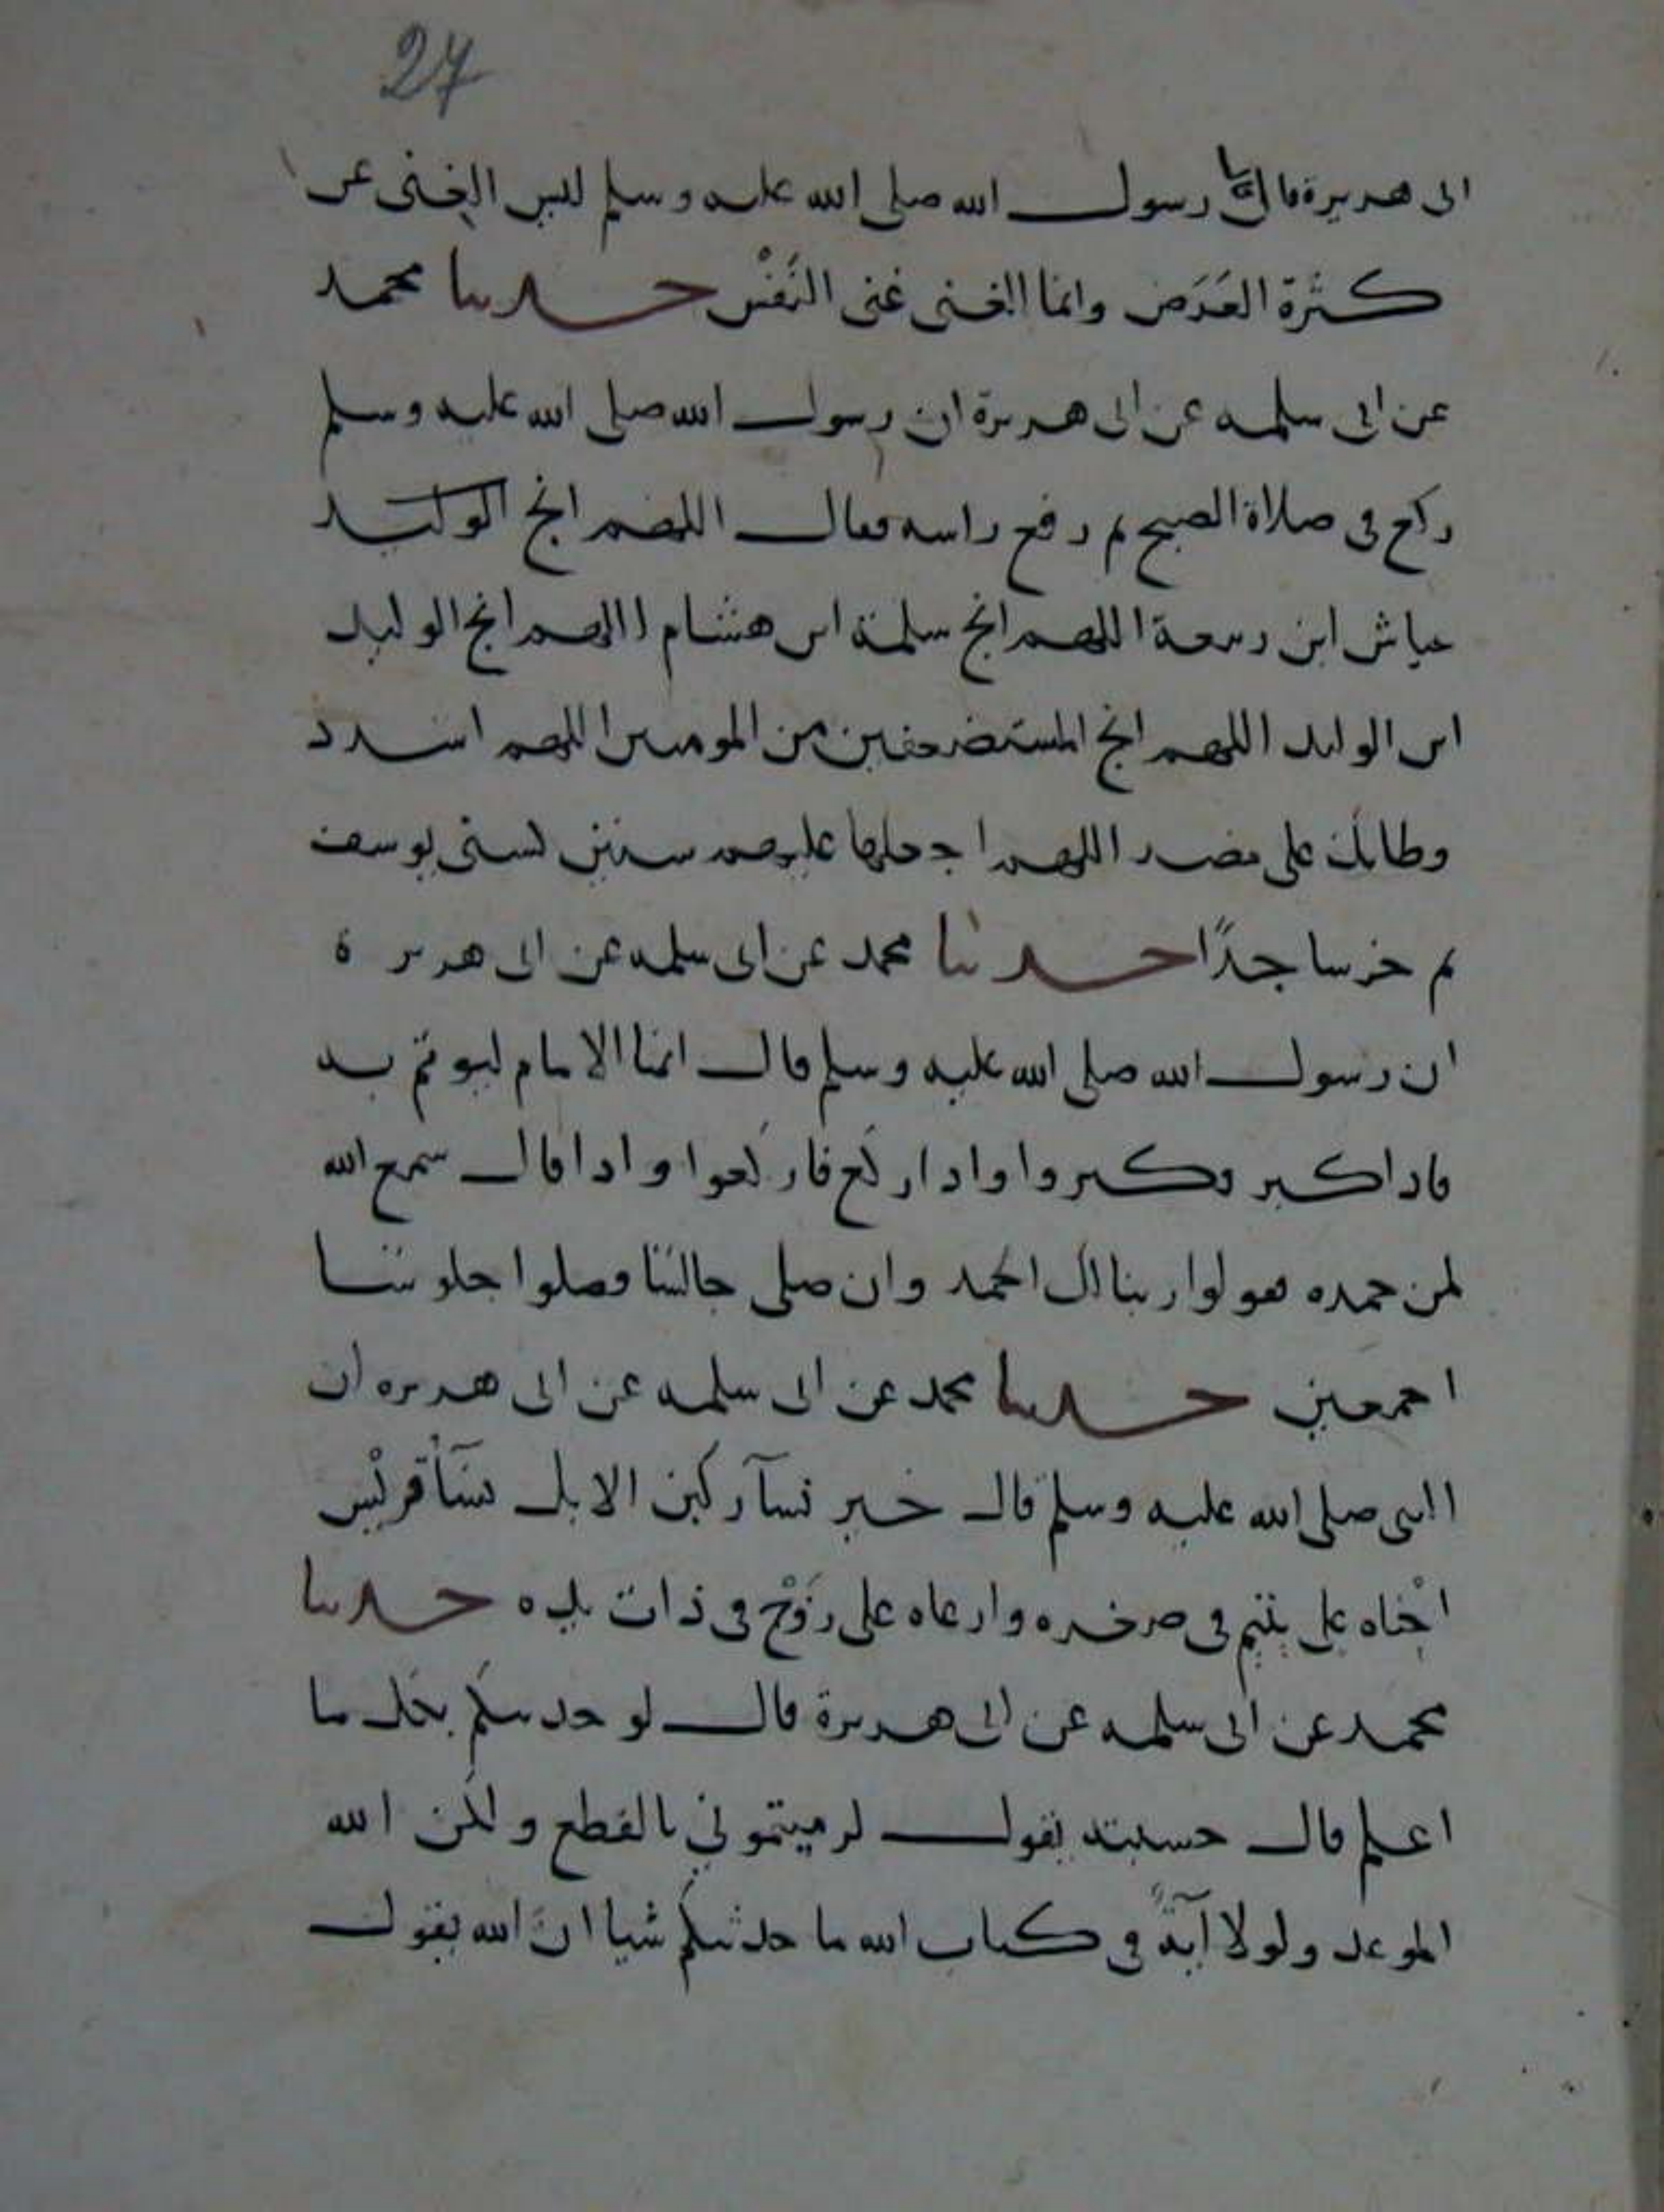 27
ابى هريرة قال قال رسول الله صلى الله عليه وسلم ليس الغنى عن
كثرة العَرَض وانما الغنى غنى النَفْس حدثنا محمد
عن ابى سلمه عن ابى هريرة ان رسول الله صلى الله عليه وسلم
ركع فى صلاة الصبح ثم رفع راسه فقال اللهم انج الوليد
عياش ابن ربيعة اللهم انج سلمة ابن هشام اللهم انج الوليد
ابن الوليد اللهم انج المستضعفين من المومنين اللهم اشدد
وطاتك على مضر اللهم اجعلها عليهم سنين كسنى يوسف
ثم خر ساجدًا حدثنا محمد عن ابى سلمه عن ابى هريرة
ان رسول الله صلى الله عليه وسلم قال انما الامام ليوتم به
فاذا كبر فكبروا واذا ركع فاركعوا واذا قال سمع الله
لمن حمده فقولوا ربنا لك الحمد وان صلى جالسا فصلوا جلوسا
اجمعين حدثنا محمد عن ابى سلمه عن ابى هريره ان
النبى صلى الله عليه وسلم قال خير نسآ ركبن الابل نسَآ قريْش
اخْناه على يتيم فى صغره وارعاه على زَوْج فى ذات يده حدثنا
محمد عن ابى سلمه عن ابى هريرة قال لو حدثتكم بكل ما
اعلم قال حسبته يقول لرميتمونى بالقطع ولكن الله
الموعد ولولا آيةً فى كتاب الله ما حدثتكم شيا انَّ الله يقول